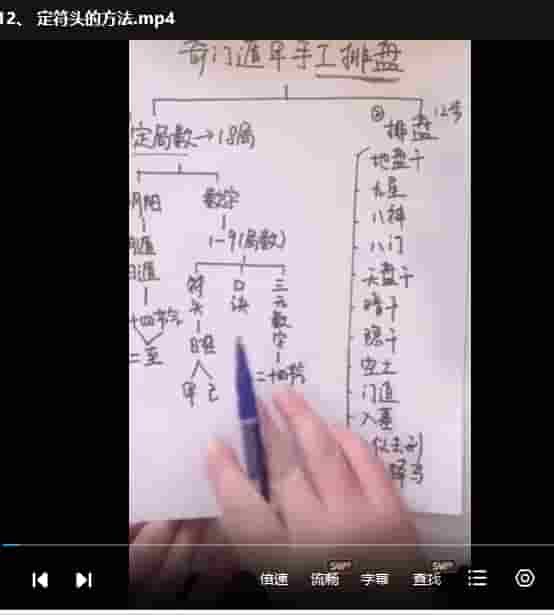 12、 定符头的方法.mp4
奇门遁甲手工排盘
定局数→18局
② 排盘 12步
阴阳
数字
1-9(局数)
遁
遁
十四节气
二至
符头
日柱
甲己
口诀
三元数字
二十四节
地盘干
九星
八神
八门
天盘干
暗干
隐干
空亡
门迫
入墓
仪击刑
驿马
倍速
流畅
SVIP
字幕
查找
SVIP